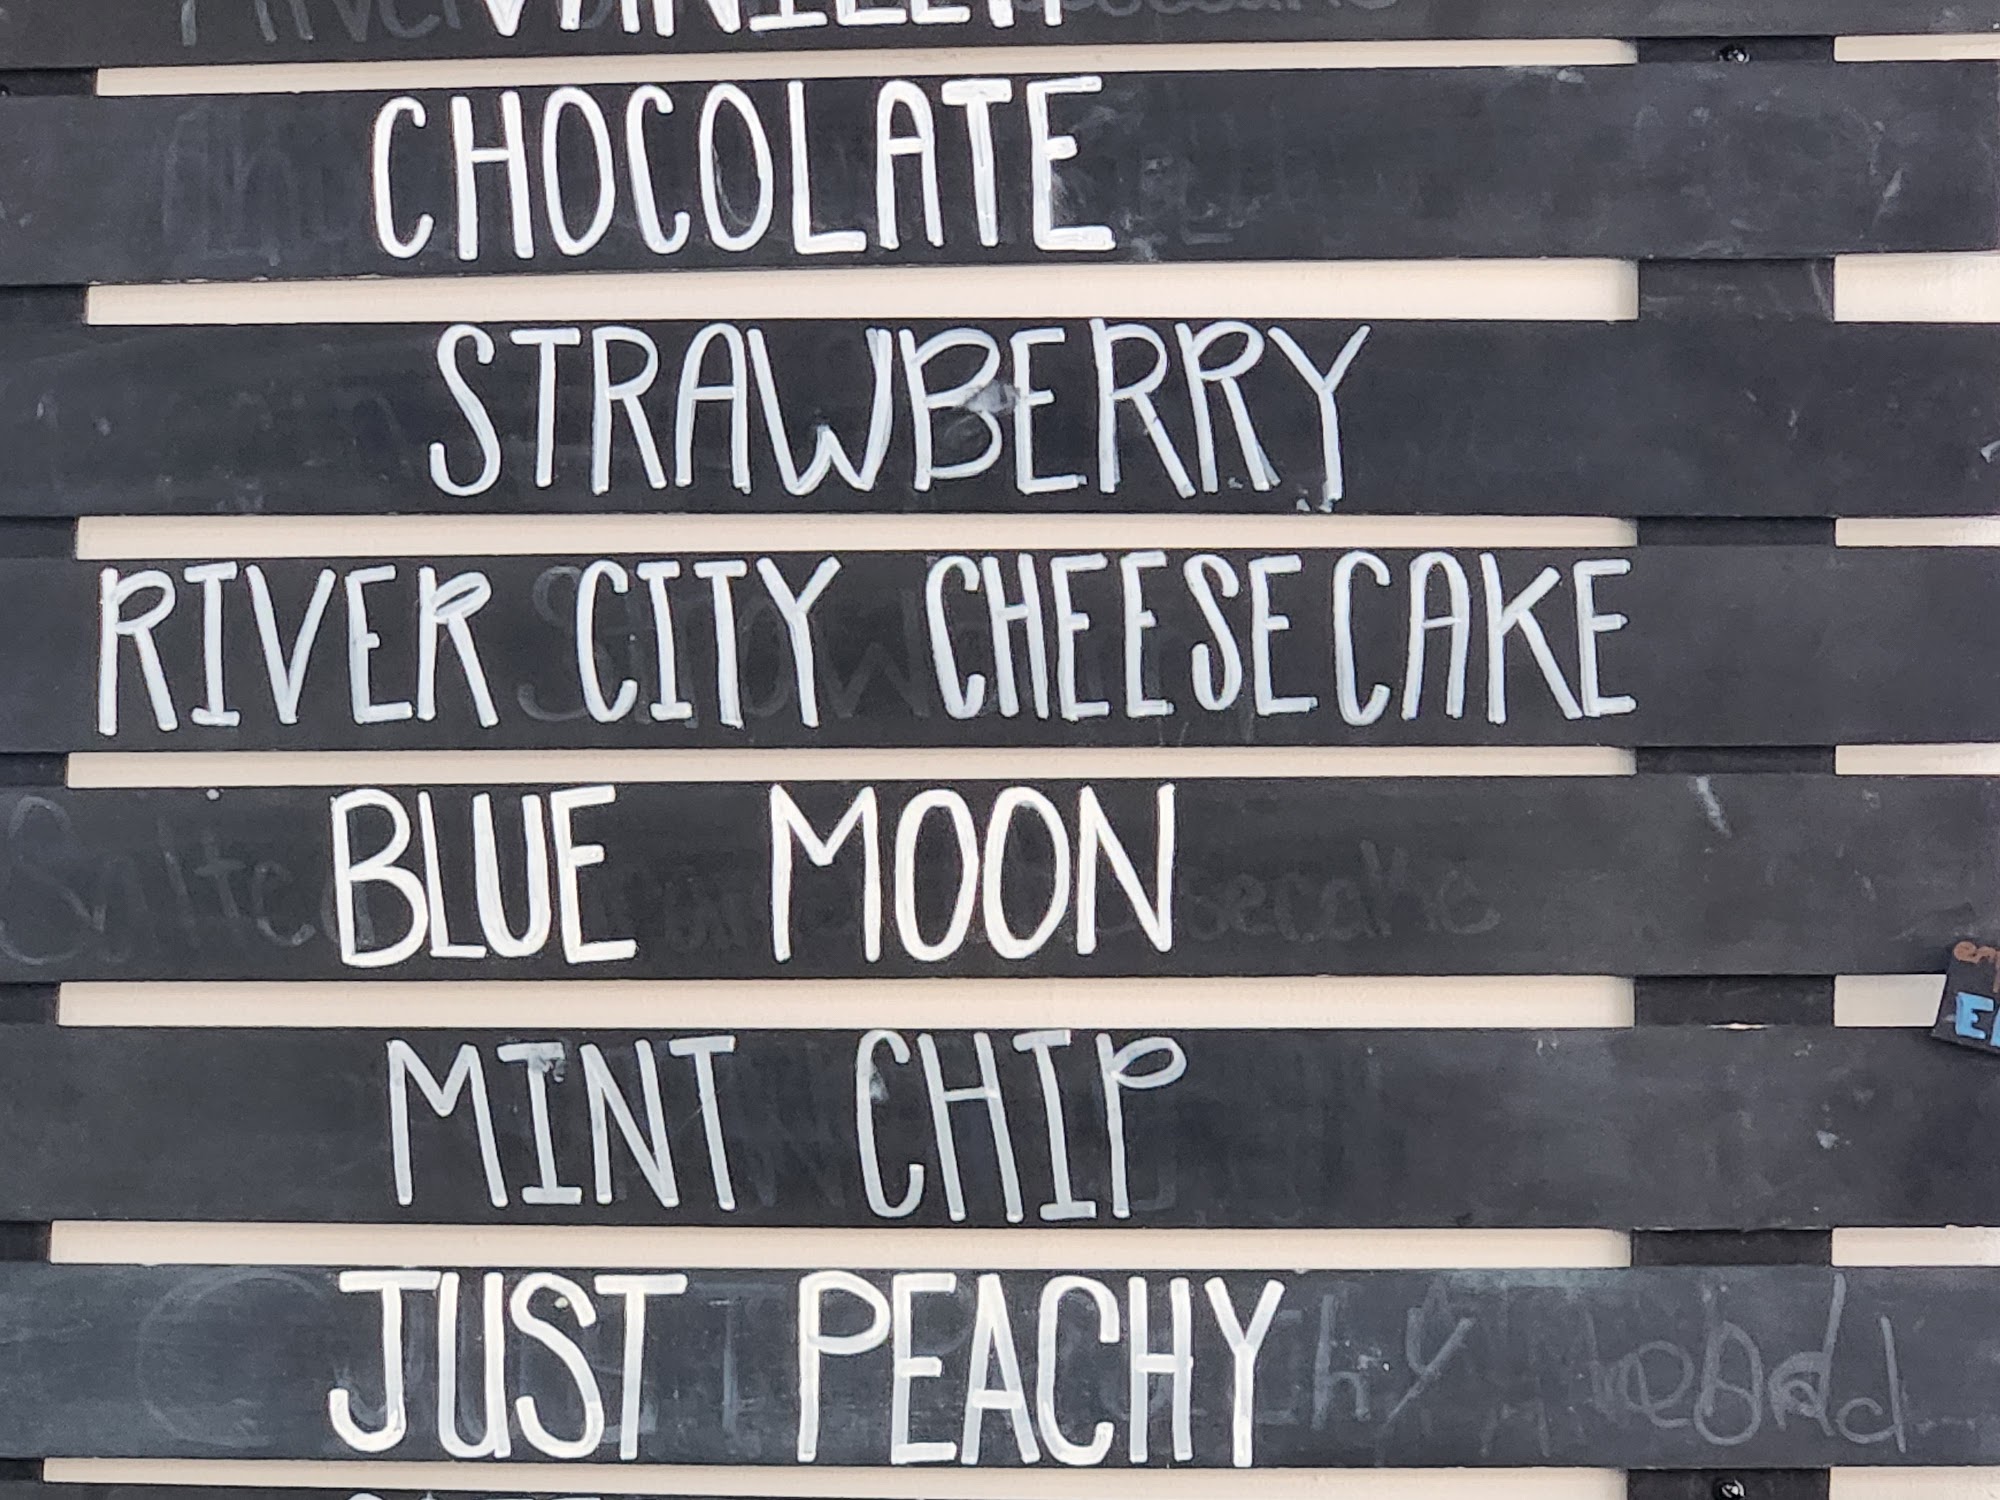 VANILLA
CHOCOLATE
STRAWBERRY
RIVER CITY CHEESECAKE
BLUE MOON
MINT CHIP
JUST PEACHY